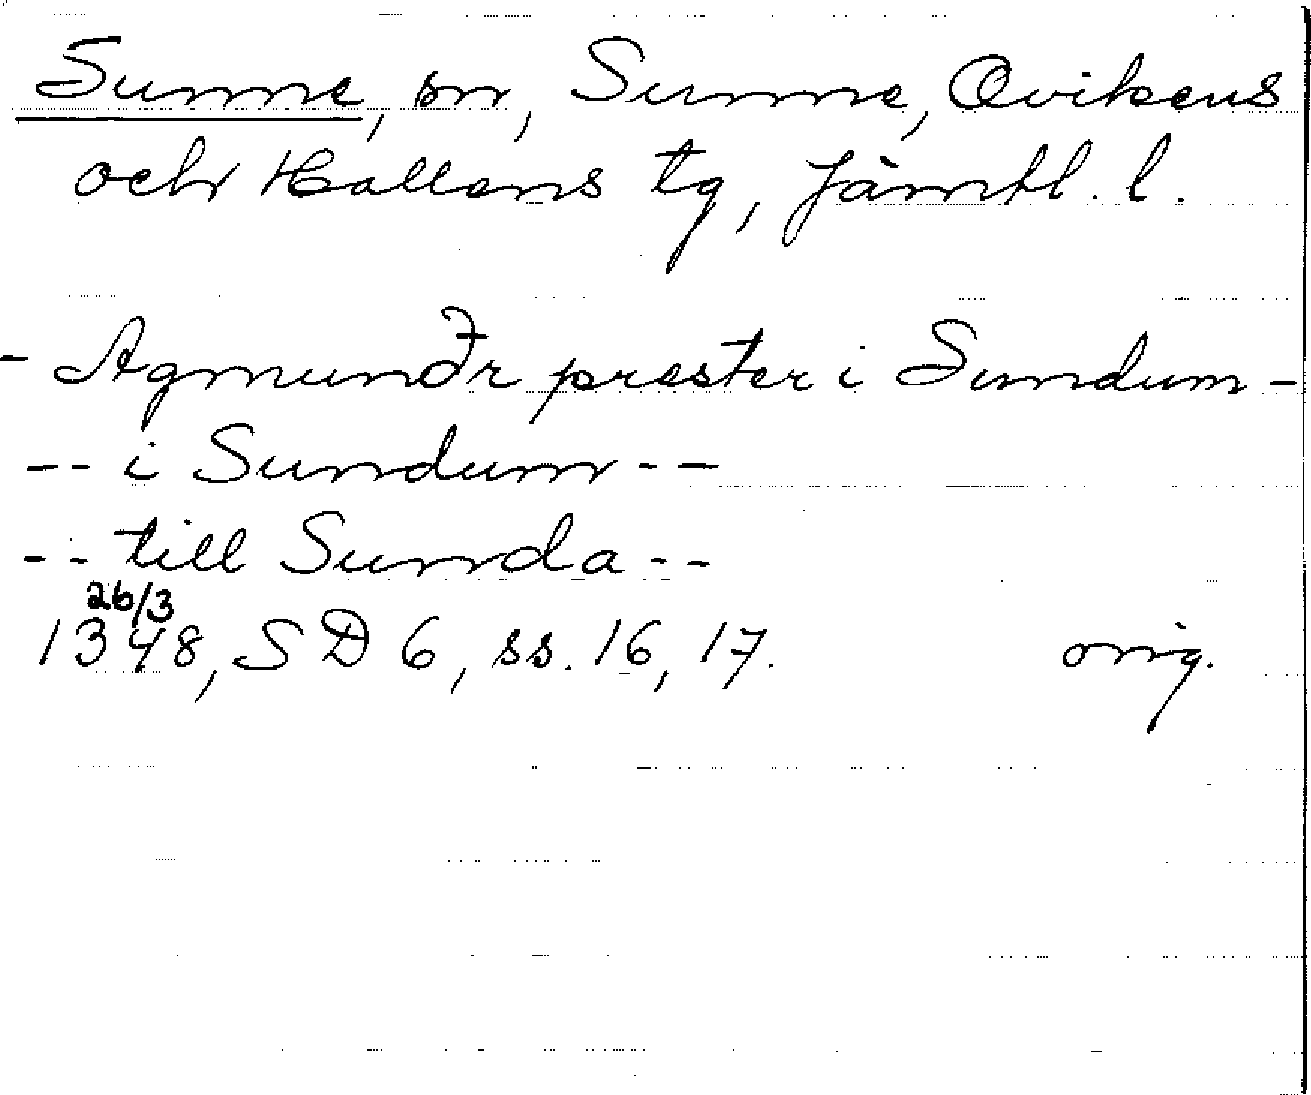 Sunne, sn, Sunne, Ovikens
och Hallens tg, Jämtl. l.
- Agmunðr prester i Sundum -
-- i Sundum --
-- till Sunda --
26/3
1348, SD 6, ss. 16, 17. orig.